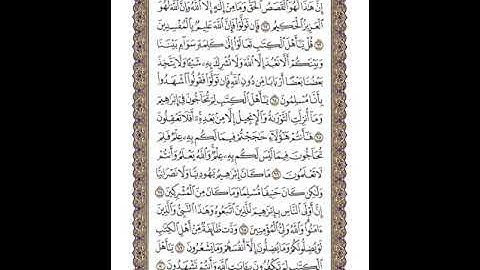 إِنَّ هَٰذَا لَهُوَ ٱلْقَصَصُ ٱلْحَقُّ وَمَا مِنْ إِلَٰهٍ إِلَّا ٱللَّهُ وَإِنَّ ٱللَّهَ لَهُوَ
ٱلْعَزِيزُ ٱلْحَكِيمُ ٦٢ فَإِن تَوَلَّوْا۟ فَإِنَّ ٱللَّهَ عَلِيمٌۢ بِٱلْمُفْسِدِينَ
٦٣ قُلْ يَٰٓأَهْلَ ٱلْكِتَٰبِ تَعَالَوْا۟ إِلَىٰ كَلِمَةٍ سَوَآءٍۭ بَيْنَنَا
وَبَيْنَكُمْ أَلَّا نَعْبُدَ إِلَّا ٱللَّهَ وَلَا نُشْرِكَ بِهِۦ شَيْـًٔا وَلَا يَتَّخِذَ
بَعْضُنَا بَعْضًا أَرْبَابًا مِّن دُونِ ٱللَّهِ فَإِن تَوَلَّوْا۟ فَقُولُوا۟ ٱشْهَدُوا۟
بِأَنَّا مُسْلِمُونَ ٦٤ يَٰٓأَهْلَ ٱلْكِتَٰبِ لِمَ تُحَآجُّونَ فِىٓ إِبْرَٰهِيمَ
وَمَآ أُنزِلَتِ ٱلتَّوْرَىٰةُ وَٱلْإِنجِيلُ إِلَّا مِنۢ بَعْدِهِۦٓ أَفَلَا تَعْقِلُونَ
٦٥ هَٰٓأَنتُمْ هَٰٓؤُلَآءِ حَٰجَجْتُمْ فِيمَا لَكُم بِهِۦ عِلْمٌ فَلِمَ
تُحَآجُّونَ فِيمَا لَيْسَ لَكُم بِهِۦ عِلْمٌ وَٱللَّهُ يَعْلَمُ وَأَنتُمْ
لَا تَعْلَمُونَ ٦٦ مَا كَانَ إِبْرَٰهِيمُ يَهُودِيًّا وَلَا نَصْرَانِيًّا
وَلَٰكِن كَانَ حَنِيفًا مُّسْلِمًا وَمَا كَانَ مِنَ ٱلْمُشْرِكِينَ ٦٧
إِنَّ أَوْلَى ٱلنَّاسِ بِإِبْرَٰهِيمَ لَلَّذِينَ ٱتَّبَعُوهُ وَهَٰذَا ٱلنَّبِىُّ وَٱلَّذِينَ
ءَامَنُوا۟ وَٱللَّهُ وَلِىُّ ٱلْمُؤْمِنِينَ ٦٨ وَدَّت طَّآئِفَةٌ مِّنْ أَهْلِ ٱلْكِتَٰبِ
لَوْ يُضِلُّونَكُمْ وَمَا يُضِلُّونَ إِلَّآ أَنفُسَهُمْ وَمَا يَشْعُرُونَ ٦٩ يَٰٓأَهْلَ
ٱلْكِتَٰبِ لِمَ تَكْفُرُونَ بِـَٔايَٰتِ ٱللَّهِ وَأَنتُمْ تَشْهَدُونَ ٧٠